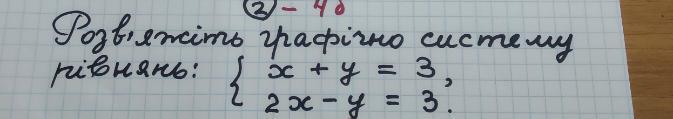 ② - 4б
Розв'яжіть графічно систему
рівнянь: { x + y = 3,
2x - y = 3.